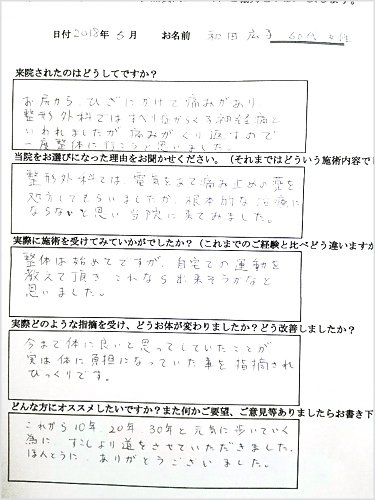 日付 2018年 6月 お名前 和田 広子 60代 女性
来院されたのはどうしてですか？
お尻から、ひざにかけて痛みがあり、
整形外科ではすべり症からくる神経痛と
いわれましたが 痛みがくり返すので
一度整体に行こうと思いました。
当院をお選びになった理由をお聞かせください。（それまではどういう施術内容で
整形外科では 電気をあて痛み止めの薬を
処方してもらいましたが、根本的な治療に
ならないと思い 当院に来てみました。
実際に施術を受けてみていかがでしたか？（これまでのご経験と比べどう違いますか
整体は始めてですが、自宅での運動を
教えて頂き これなら出来そうかなと
思いました。
実際どのような指摘を受け、どうお体が変わりましたか？どう改善しましたか？
今まで体に良いと思ってしていたことが
実は体に負担になっていた事を指摘され
びっくりです。
どんな方にオススメしたいですか？また何かご要望、ご意見等ありましたらお書き下
これから10年、20年、30年と元気に歩いていく
為に すこしより道をさせていただきました。
ほんとうに ありがとうございました。